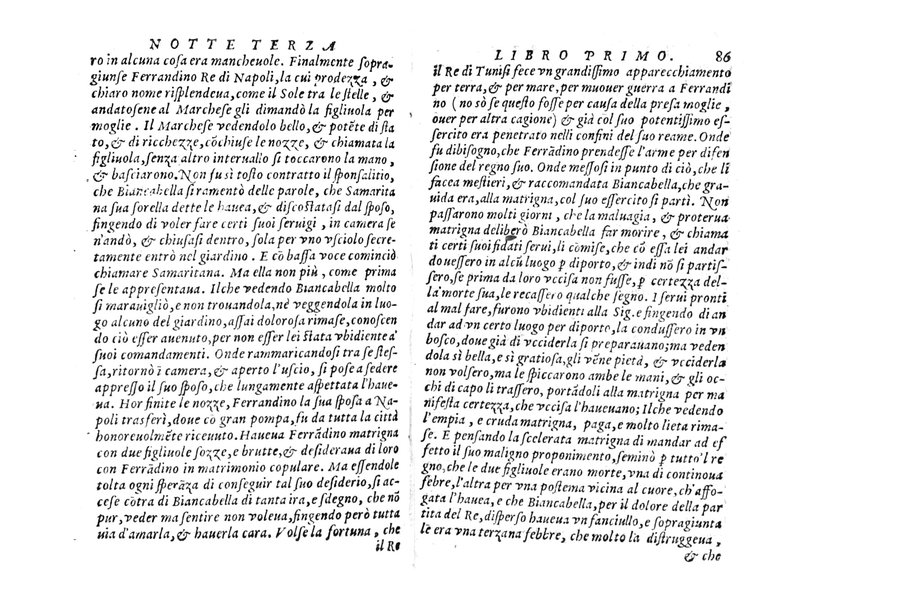 NOTTE TERZA
ro in alcuna coſa era mancheuole. Finalmente ſopra-
giunſe Ferrandino Re di Napoli, la cui prodezza, &
chiaro nome riſplendeua, come il Sole tra le ſtelle, &
andatoſene al Marcheſe gli dimandò la figliuola per
moglie. Il Marcheſe vedendolo bello, & potẽte di ſta
to, & di ricchezze, cõchiuſe le nozze, & chiamata la
figliuola, ſenza altro interuallo ſi toccarono la mano,
& baſciarono. Non fu sì toſto contratto il ſponſalitio,
che Biancabella ſi ramentò delle parole, che Samarita
na ſua ſorella dette le haueа, & diſcoſtataſi dal ſpoſo,
fingendo di voler fare certi ſuoi ſeruigi, in camera ſe
n'andò, & chiuſaſi dentro, ſola per vno vſciolo ſecre-
tamente entrò nel giardino. E cõ baſſa voce cominciò
chiamare Samaritana. Ma ella non più, come prima
ſe le appreſentaua. Ilche vedendo Biancabella molto
ſi marauigliò, e non trouandola, nè veggendola in luo-
go alcuno del giardino, aſſai doloroſa rimaſe, conoſcen
do ciò eſſer auenuto, per non eſſer lei ſtata vbidiente à
ſuoi comandamenti. Onde rammaricandoſi tra ſe ſteſ-
ſa, ritornò ĩ camera, & aperto l'uſcio, ſi poſe a ſedere
appreſſo il ſuo ſpoſo, che lungamente aſpettata l'haue-
ua. Hor finite le nozze, Ferrandino la ſua ſpoſa a Na-
poli trasferì, doue cõ gran pompa, fu da tutta la città
honoreuolmẽte riceuuto. Haueua Ferrãdino matrigna
con due figliuole ſozze, e brutte, & deſideraua di loro
con Ferrãdino in matrimonio copulare. Ma eſſendole
tolta ogni ſperãza di conſeguir tal ſuo deſiderio, ſi ac-
ceſe cõtra di Biancabella di tanta ira, e ſdegno, che nõ
pur, veder ma ſentire non voleua, fingendo però tutta
uia d'amarla, & hauerla cara. Volſe la fortuna, che
il Re
LIBRO PRIMO. 86
il Re di Tuniſi fece vn grandiſſimo apparecchiamento
per terra, & per mare, per muouer guerra a Ferrandi
no (no sò ſe queſto foſſe per cauſa della preſa moglie,
ouer per altra cagione) & già col ſuo potentiſſimo eſ-
ſercito era penetrato nelli confini del ſuo reame. Onde
fu dibiſogno, che Ferrãdino prendeſſe l'arme per difen
ſione del regno ſuo. Onde meſſoſi in punto di ciò, che li
facea meſtieri, & raccomandata Biancabella, che gra-
uida era, alla matrigna, col ſuo eſſercito ſi partì. Non
paſſarono molti giorni, che la maluagia, & proterua
matrigna deliberò Biancabella far morire, & chiama
ti certi ſuoi fidati ſerui, li cõmiſe, che cõ eſſa lei andar
doueſſero in alcũ luogo ꝑ diporto, & indi nõ ſi partiſ-
ſero, ſe prima da loro vcciſa non fuſſe, ꝑ certezza del-
la morte ſua, le recaſſero qualche ſegno. I ſerui pronti
al mal fare, furono vbidienti alla Sig. e fingendo di an
dar ad vn certo luogo per diporto, la conduſſero in vn
boſco, doue già di vcciderla ſi preparauano; ma veden
dola sì bella, e sì gratioſa, gli vẽne pietà, & vcciderla
non volſero, ma le ſpiccarono ambe le mani, & gli oc-
chi di capo li traſſero, portãdoli alla matrigna per ma
nifeſta certezza, che vcciſa l'haueuano; Ilche vedendo
l'empia, e cruda matrigna, paga, e molto lieta rima-
ſe. E penſando la ſcelerata matrigna di mandar ad ef
fetto il ſuo maligno proponimento, ſeminò ꝑ tutto'l re
gno, che le due figliuole erano morte, vna di continoua
febre, l'altra per vna poſtema vicina al cuore, ch'affo-
gata l'hauea, e che Biancabella, per il dolore della par
tita del Re, diſperſo haueua vn fanciullo, e ſopragiunta
le era vna terzana febbre, che molto la diſtruggeua,
& che